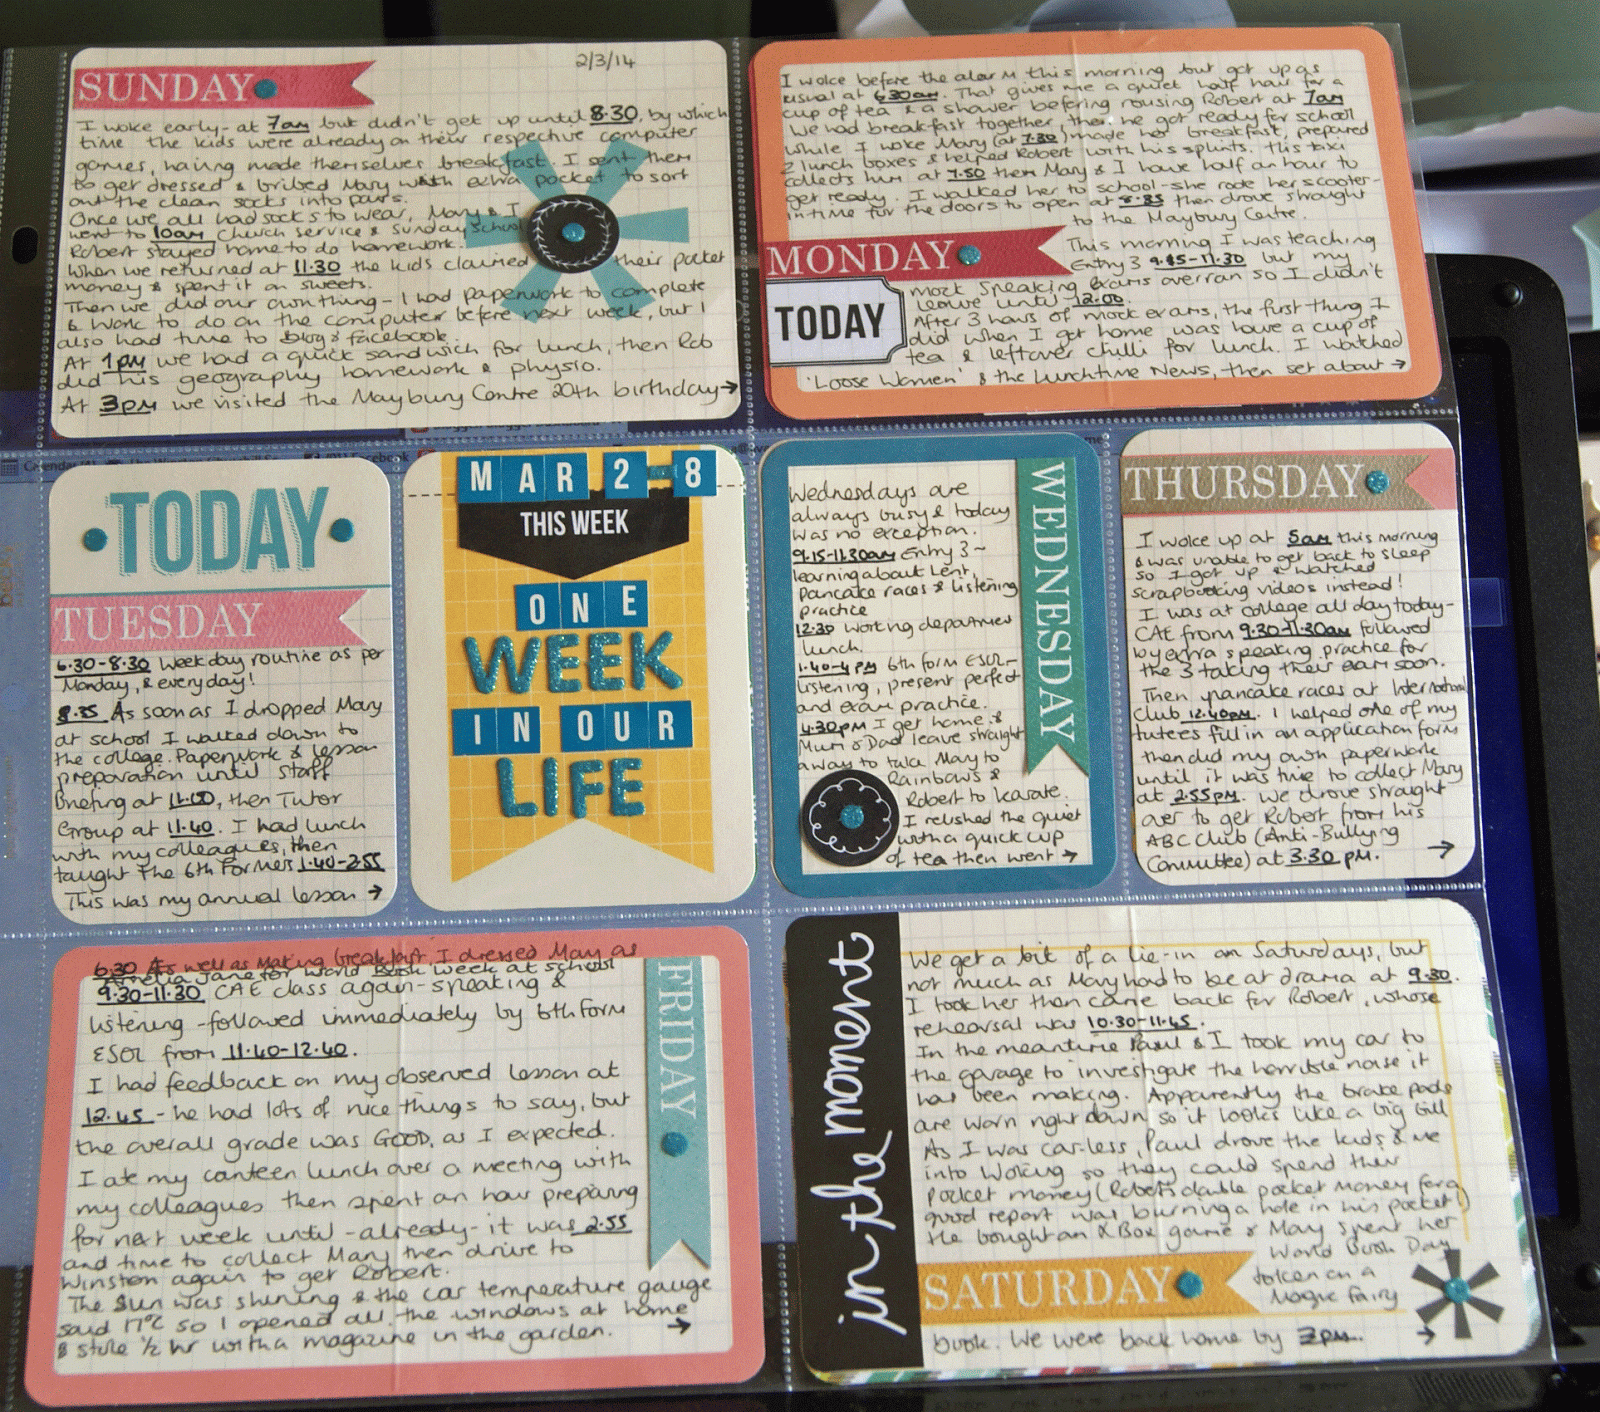 SUNDAY
2/3/14
I woke early - at 7am but didn't get up until 8.30, by which
time the kids were already on their respective computer
games, having made themselves breakfast. I sent them
to get dressed & bribed Mary with extra pocket to sort
out the clean socks into pairs.
Once we all had socks to wear, Mary & I
went to 10am Church service & Sunday School
Robert stayed home to do homework.
When we returned at 11.30 the kids claimed their pocket
money & spent it on sweets.
Then we did our own thing - I had paperwork to complete
& work to do on the computer before next week, but I
also had time to blog & facebook.
At 1pm we had a quick sandwich for lunch, then Rob
did his geography homework & physio.
At 3pm we visited the Maybury Centre 20th birthday →
I woke before the alarm this morning but got up as
usual at 6.30am. That gives me a quiet half hour for a
cup of tea & a shower before rousing Robert at 7am
We had breakfast together, then he got ready for school
while I woke Mary (at 7.30) made her breakfast, prepared
2 lunch boxes & helped Robert with his splints. His taxi
collects him at 7.50 then Mary & I have half an hour to
get ready. I walked her to school - she rode her scooter -
in time for the doors to open at 8.35 then drove straight
to the Maybury Centre.
MONDAY
This morning I was teaching
Entry 3 9.15-11.30 but my
TODAY
mock speaking exams overran so I didn't
leave until 12.00.
After 3 hours of mock exams, the first thing I
did when I got home was have a cup of
tea & leftover chilli for lunch. I watched
'Loose Women' & the Lunchtime News, then set about →
TODAY
TUESDAY
6.30-8.30 Weekday routine as per
Monday, & everyday!
8.35 As soon as I dropped Mary
at school I walked down to
the college. Paperwork & lesson
preparation until staff
Briefing at 11.00, then Tutor
Group at 11.40. I had lunch
with my colleagues, then
taught The 6th Formers 1.40-2.55
This was my annual lesson →
MAR 2-8
THIS WEEK
ONE
WEEK
IN OUR
LIFE
WEDNESDAY
Wednesdays are
always busy & today
was no exception.
9.15-11.30am Entry 3 -
learning about Lent,
pancake races & listening
practice
12.30 working department
lunch.
1.40-4pm 6th form ESOL -
listening, present perfect
and exam practice.
4.30pm I get home &
Mum & Dad leave straight
away to take Mary to
Rainbows &
Robert to Karate.
I relished the quiet
with a quick cup
of tea then went →
THURSDAY
I woke up at 5am this morning
& was unable to get back to sleep
so I got up & watched
scrapbooking videos instead!
I was at college all day today -
CAE from 9.30-11.30am followed
by extra speaking practice for
the 3 taking their exam soon.
Then pancake races at International
Club 12.40pm. I helped one of my
tutees fill in an application form
then did my own paperwork
until it was time to collect Mary
at 2.55pm. We drove straight
over to get Robert from his
ABC Club (Anti-Bullying
Committee) at 3.30 pm. →
FRIDAY
6.30 As well as making breakfast, I dressed Mary as
Amelia Jane for World Book Week at school
9.30-11.30 CAE class again - speaking &
listening - followed immediately by 6th form
ESOL from 11.40-12.40.
I had feedback on my observed lesson at
12.45 - he had lots of nice things to say, but
the overall grade was GOOD, as I expected.
I ate my canteen lunch over a meeting with
my colleagues then spent an hour preparing
for next week until - already - it was 2.55
and time to collect Mary then drive to
Winston again to get Robert.
The sun was shining & the car temperature gauge
said 17°C so I opened all the windows at home
& stole ½ hr with a magazine in the garden. →
in the moment
We get a bit of a lie-in on Saturdays, but
not much as Mary had to be at drama at 9.30.
I took her then came back for Robert, whose
rehearsal was 10.30-11.45.
In the meantime Paul & I took my car to
the garage to investigate the horrible noise it
has been making. Apparently the brake pads
are worn right down so it looks like a big bill
As I was car-less, Paul drove the kids & me
into Woking so they could spend their
pocket money (Robert's double pocket money for a
good report was burning a hole in his pocket!)
He bought an X Box game & Mary spent her
World Book Day
SATURDAY
token on a
Magic Fairy
book. We were back home by 2pm. →